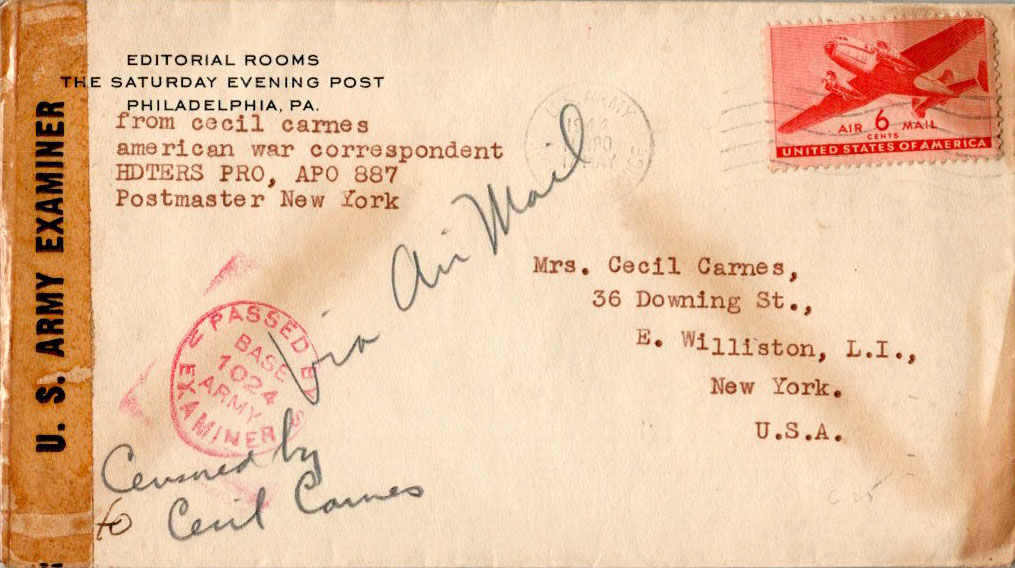 EDITORIAL ROOMS
THE SATURDAY EVENING POST
PHILADELPHIA, PA.
from cecil carnes
american war correspondent
HDTERS PRO, APO 887
Postmaster New York
U. S. ARMY EXAMINER
U.S. ARMY
AIR 6 MAIL
CENTS
UNITED STATES OF AMERICA
Via Air Mail
Mrs. Cecil Carnes,
36 Downing St.,
E. Williston, L.I.,
New York.
U.S.A.
PASSED BY
BASE
1024
ARMY
EXAMINER
Censored by
to Cecil Carnes